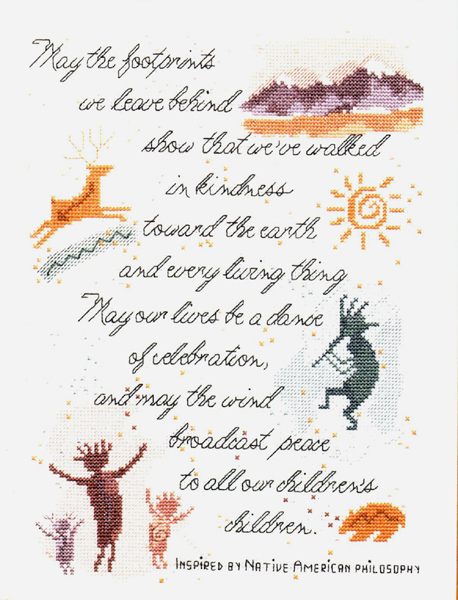 May the footprints
we leave behind
show that we've walked
in kindness
toward the earth
and every living thing
May our lives be a dance
of celebration,
and may the wind
broadcast peace
to all our children's
children.
INSPIRED BY NATIVE AMERICAN PHILOSOPHY